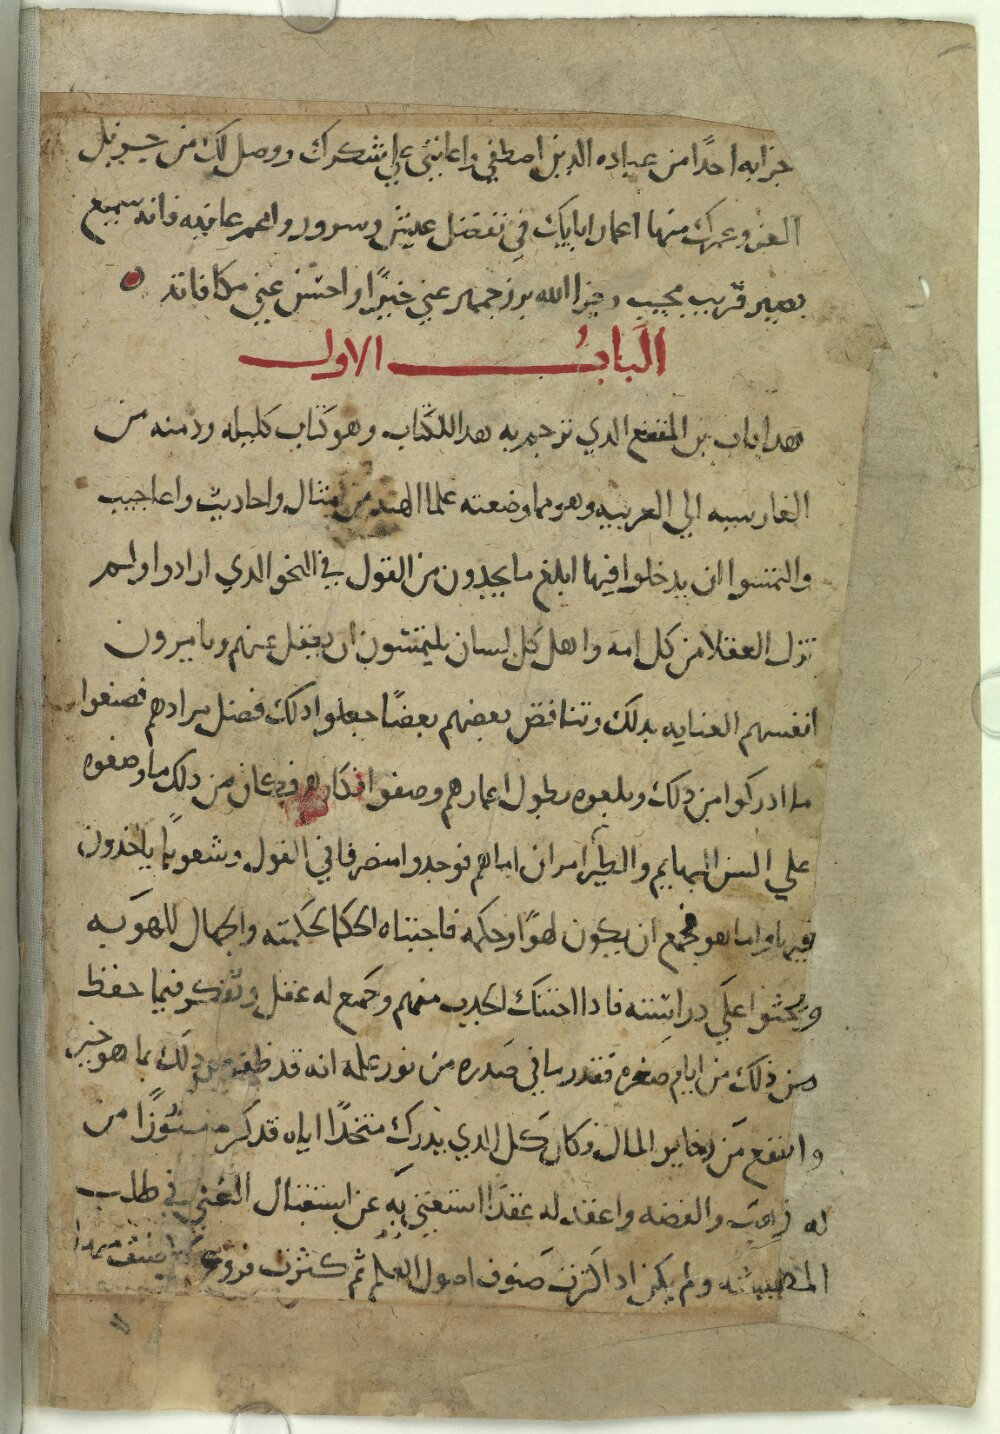 جزا به احدًا من عباده الدين اصطفي واعانني علي شكرك ووصل لك من جزيل
العز وعمرك منها اعمار ابايك في تفضل عيش وسرور وانعم عافيه فانه سميع
بصير قريب مجيب وجزا الله برزجمهر عني خيرًا واحسن عني مكافاته
الباب الاول
هدا باب بن المقفع الدي ترجم به هدا الكتاب وهو كتاب كليله ودمنه من
الفارسيه الي العربيه وهو مما وضعته علما الهند من امثال واحاديث واعاجيب
والتمسوا ان يدخلوا فيها ابلغ ما يجدون من القول في النحو الدي ارادوا ولم
تزل العقلا من كل امه واهل كل لسان يلتمسون ان يعقل عنهم ويا مرون
انفسهم العنايه بدلك وتناقض بعضهم بعضًا جعلوا دلك فضل مرادهم فصنعوا
ما ادركوا من دلك وبلغوه بطول اعمارهم وصفوا افكارهم فكان من دلك ما وضعوه
علي السن البهايم والطير امران اما هم فوجدوا متصرفا في القول وشعوبًا ياخدون
فيها واما هو فجمع ان يكون لهوًا وحكمه فاجتباه الحكما لحكمته والجهال للهوَ به
علي دراسته فادا احتنك الحدث منهم وجمع له عقل وتفكر فيما حفظ
من ذلك من ايام صغره صَدره من نور علمه انه قد ظفر من دلك بما هو خير
وانفع من دخاير المال وكان كل الدي يدرك متخدًا اياه قد كنز من
له دهب والفضه واعقد له عقدًا استغني به عن استقبال الغني في طلب
ولم يكن اد اكثرت صنوف اصول العلم ثم كثرت فروعه